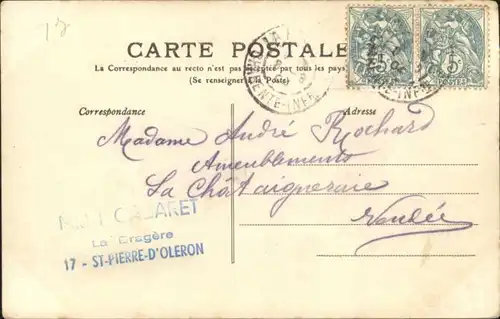 CARTE POSTALE
La Correspondance au recto n'est pas acceptée par tous les pays
(Se renseigner à la Poste)
Correspondance
Adresse
Madame André Rochard
Ameublements
La Châtaigneraie
Vendée
CABARET
La Dragère
17 - ST-PIERRE-D'OLERON
5
5
POSTES